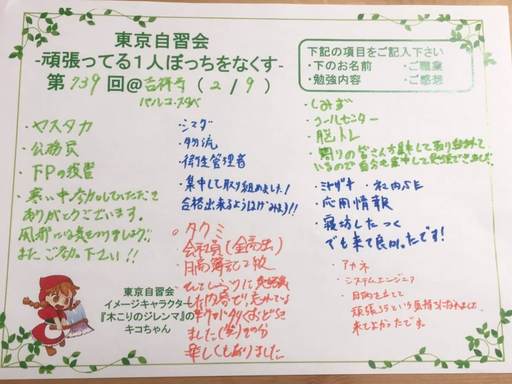 東京自習会
-頑張ってる1人ぼっちをなくす-
第739回@吉祥寺(2/9)
パルコ・スタバ
下記の項目をご記入下さい
・下のお名前 ・ご職業
・勉強内容 ・ご感想
・ヤスタカ
・公務員
・FPの復習
・寒い中参加していただき
ありがとうございます。
風邪には気をつけましょう!!
またご参加下さい!!
・シマダ
・物流
・衛生管理者
・集中して取り組めました!
合格出来るようはげみます!!
・タクミ
・会社員(金融)
・日商簿記2級
した内容で、忘れている
ました(笑)その分
楽しくもありました
・しみず
・コールセンター
・脳トレ
・周りの皆さんが集中して取り組まれて
いるので自分も集中して
・ミヤザキ ・社内SE
・応用情報
・寝坊したっ
でも来て良かったです!
・アカネ
・システムエンジニア
・目的を立てて
頑張ろうという気持ちになれました。
来てよかったです。
東京自習会
イメージキャラクター
『木こりのジレンマ』の
キコちゃん